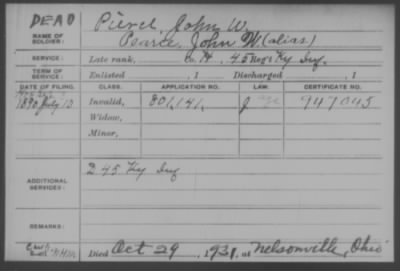 DEAD
NAME OF SOLDIER: Pierce, John W.
Pearce, John W. (alias)
SERVICE: Late rank, Co. H, 45 Reg't Ky Inf.
TERM OF SERVICE: Enlisted , 1 Discharged , 1
DATE OF FILING. CLASS. APPLICATION NO. LAW. CERTIFICATE NO.
1890 July 12 Invalid, 801,141, 947045
Widow,
Minor,
ADDITIONAL SERVICES: D 45 Ky Inf
REMARKS:
Died Oct 29, 1931, at Nelsonville, Ohio